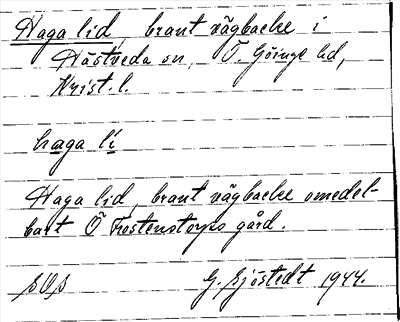 Haga lid, brant vägbacke i
Hästveda sn, Ö. Göinge hd,
Krist. l.
haga lí
Haga lid, brant vägbacke omedel-
bart Ö Frostentorps gård.
SOS G. Sjöstedt 1944.